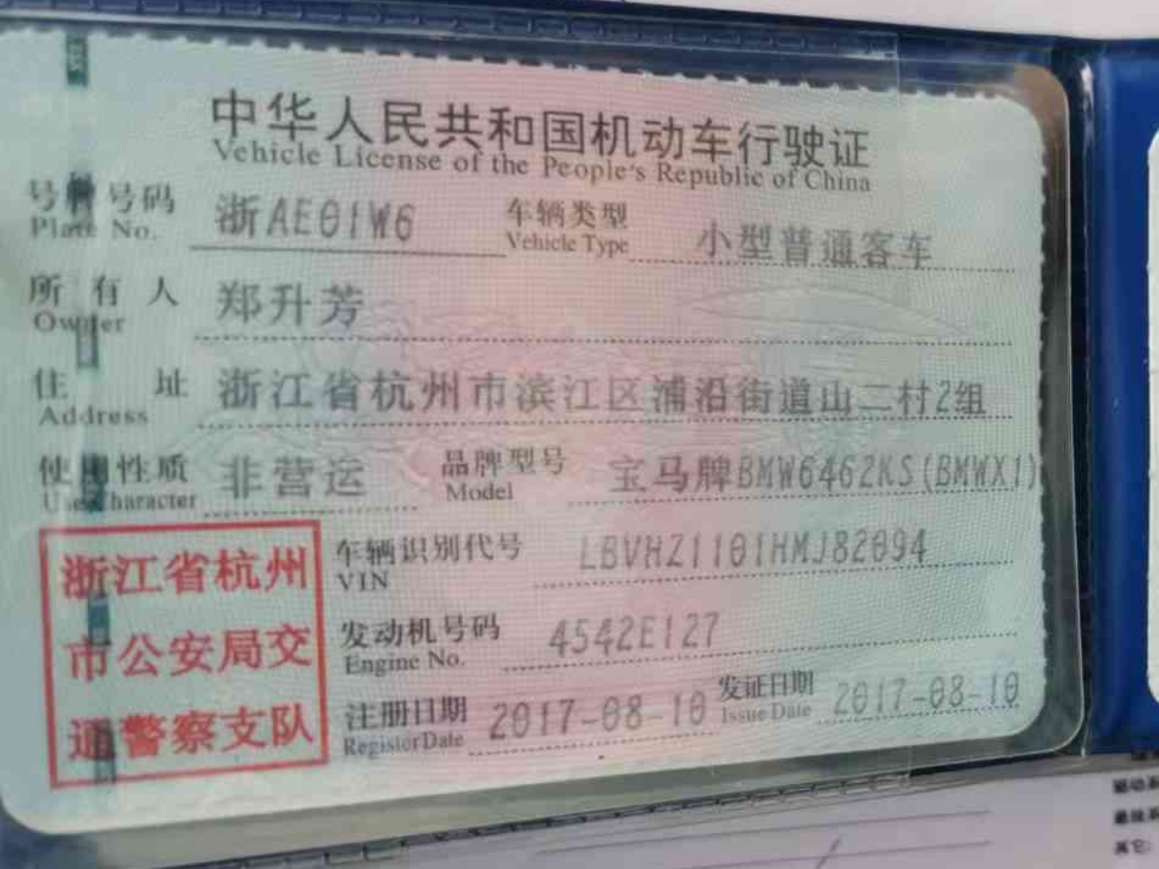 中华人民共和国机动车行驶证
Vehicle License of the People's Republic of China
号牌号码 浙AE01W6 车辆类型 小型普通客车
Plate No. Vehicle Type
所有人 郑升芳
Owner
住址 浙江省杭州市滨江区浦沿街道山二村2组
Address
使用性质 非营运 品牌型号 宝马牌BMW6462KS(BMWX1)
Use Character Model
浙江省杭州
市公安局交
通警察支队
车辆识别代号 LBVHZ1101HMJ82094
VIN
发动机号码 4542E127
Engine No.
注册日期 2017-08-10 发证日期 2017-08-10
Register Date Issue Date
其它: